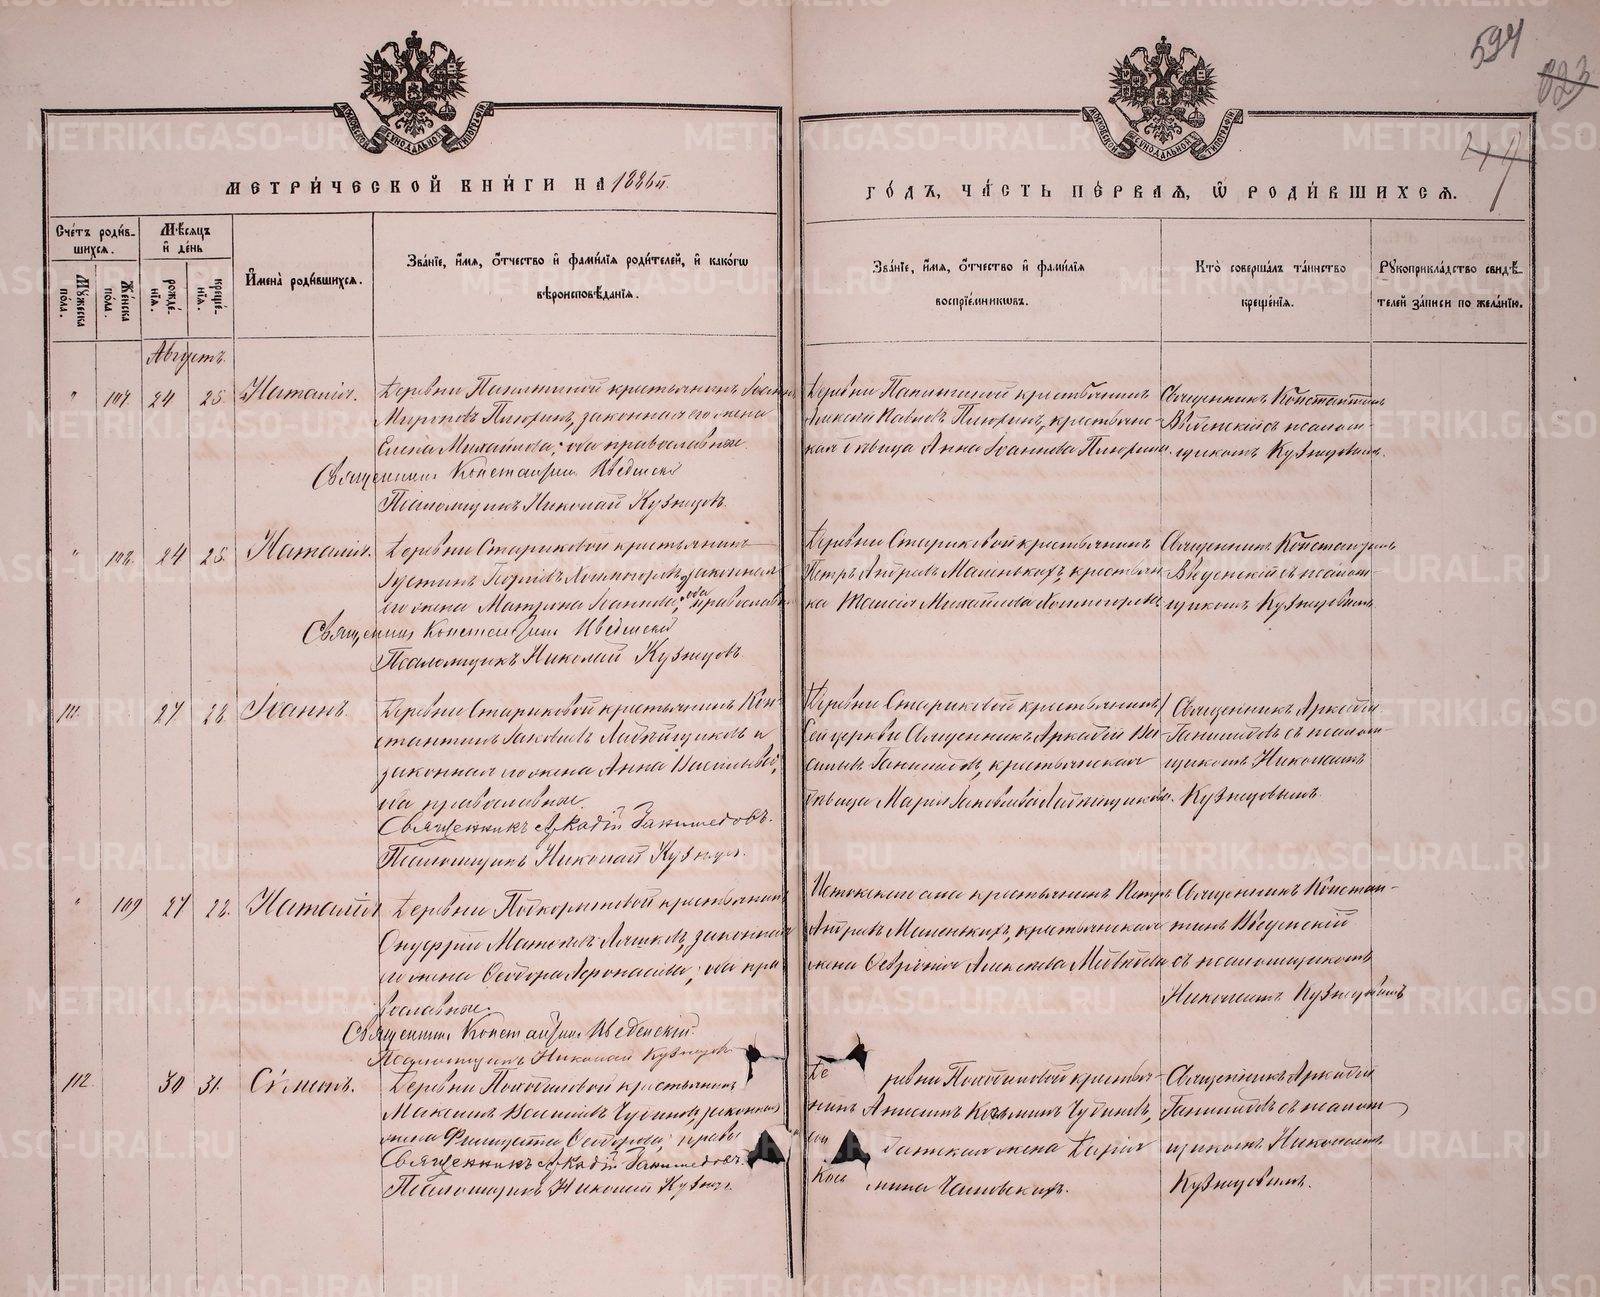 594
823
47
МОСКОВСКОЙ СѴНОДАЛЬНОЙ ТИПОГРАФІИ
МОСКОВСКОЙ СѴНОДАЛЬНОЙ ТИПОГРАФІИ
МЕТРИ́ЧЕСКОЙ КНИ́ГИ НА 1886й
ГО́ДЪ, ЧА́СТЬ ПЕ́РВАЯ, Ѿ РОДИ́ВШИХСЯ.
Сче́тъ роди́в-
шихся.
Мꙋ́жеска пола.
Же́нска по́ла.
Мѣ́сяцъ
и҆ де́нь
рожде́-
нїя.
креще́-
нїя.
И҆мена̀ роди́вшихся.
Зва́нїе, и҆́мя, ѻ҆́тчество и҆ фами́лїя роди́телей, и҆ како́гѡ
вѣроисповѣ́данїя.
Зва́нїе, и҆́мя, ѻ҆́тчество и҆ фами́лїя
воспрїе́мниковъ.
Кто̀ соверша́лъ та́инство
креще́нїя.
Рꙋкоприкла́дство свидѣ́-
телей за́писи по жела́нїю.
Августъ.
" 107 24 25. Наталія.
Деревни крестьянинъ Іоаннъ
Мироновъ Пшоринъ, законная его жена
Елена Михайлова; оба православные.
Священникъ Константинъ Введенскій
Псаломщикъ Николай Кузнецовъ.
Деревни крестьянинъ
Алексій Павловъ Пшоринъ, крестьянс-
кая дѣвица Анна Іоаннова Пшорина.
Священникъ Константинъ
Введенскій съ псалом-
щикомъ Кузнецовымъ.
" 108. 24 25. Наталія.
Деревни Стариковой крестьянинъ
Іустинъ Георгіевъ Холмогоровъ, законная
его жена Матрона Іоаннова; оба православн.
Священникъ Константинъ Введенскій
Псаломщикъ Николай Кузнецовъ.
Деревни Стариковой крестьянинъ
Петръ Андреевъ Маленькихъ, крестьян-
ка Таисія Михайлова Холмогорова
Священникъ Константинъ
Введенскій съ псалом-
щикомъ Кузнецовымъ
111. 27 28. Іоаннъ.
Деревни Стариковой крестьянинъ Кон-
стантинъ Іаковлевъ и
законная его жена Анна Васильева;
оба православные.
Священникъ Аркадій Ганимедовъ.
Псаломщикъ Николай Кузнецовъ.
Деревни Стариковой крестьянинъ
Сей церкви Священникъ Аркадій Ва-
сильевъ Ганимедовъ, крестьянская
дѣвица Марія Іаковлева
Священникъ Аркадій
Ганимедовъ съ псалом-
щикомъ Николаемъ
Кузнецовымъ.
" 109 27 28. Наталія
Деревни Подкорытовой крестьянинъ
Онуфрій законная
его жена Ѳеодора Аѳонасьева; оба пра-
вославные.
Священникъ Константинъ Введенскій.
Псаломщикъ Николай Кузнецовъ
Истокского села крестьянинъ Петръ
Андреевъ Маленькихъ, крестьянская
жена Алексѣева
Священникъ Констан-
тинъ Введенскій
съ псаломщикомъ
Николаемъ Кузнецовымъ
112. 30 31. Сѵмеонъ.
Деревни крестьянинъ
Максимъ Васильевъ Чубиновъ, законная
жена Ѳеодорова; правос
Священникъ Аркадій Ганимедовъ.
Псаломщикъ Николай Кузнец.
Деревни крестья-
нинъ Анисимъ Козьминъ Чубиновъ,
солдатская жена Дарія
Косьмина
Священникъ Аркадій
Ганимедовъ съ псалом-
щикомъ Николаемъ
Кузнецовымъ.
METRIKI.GASO-URAL.RU